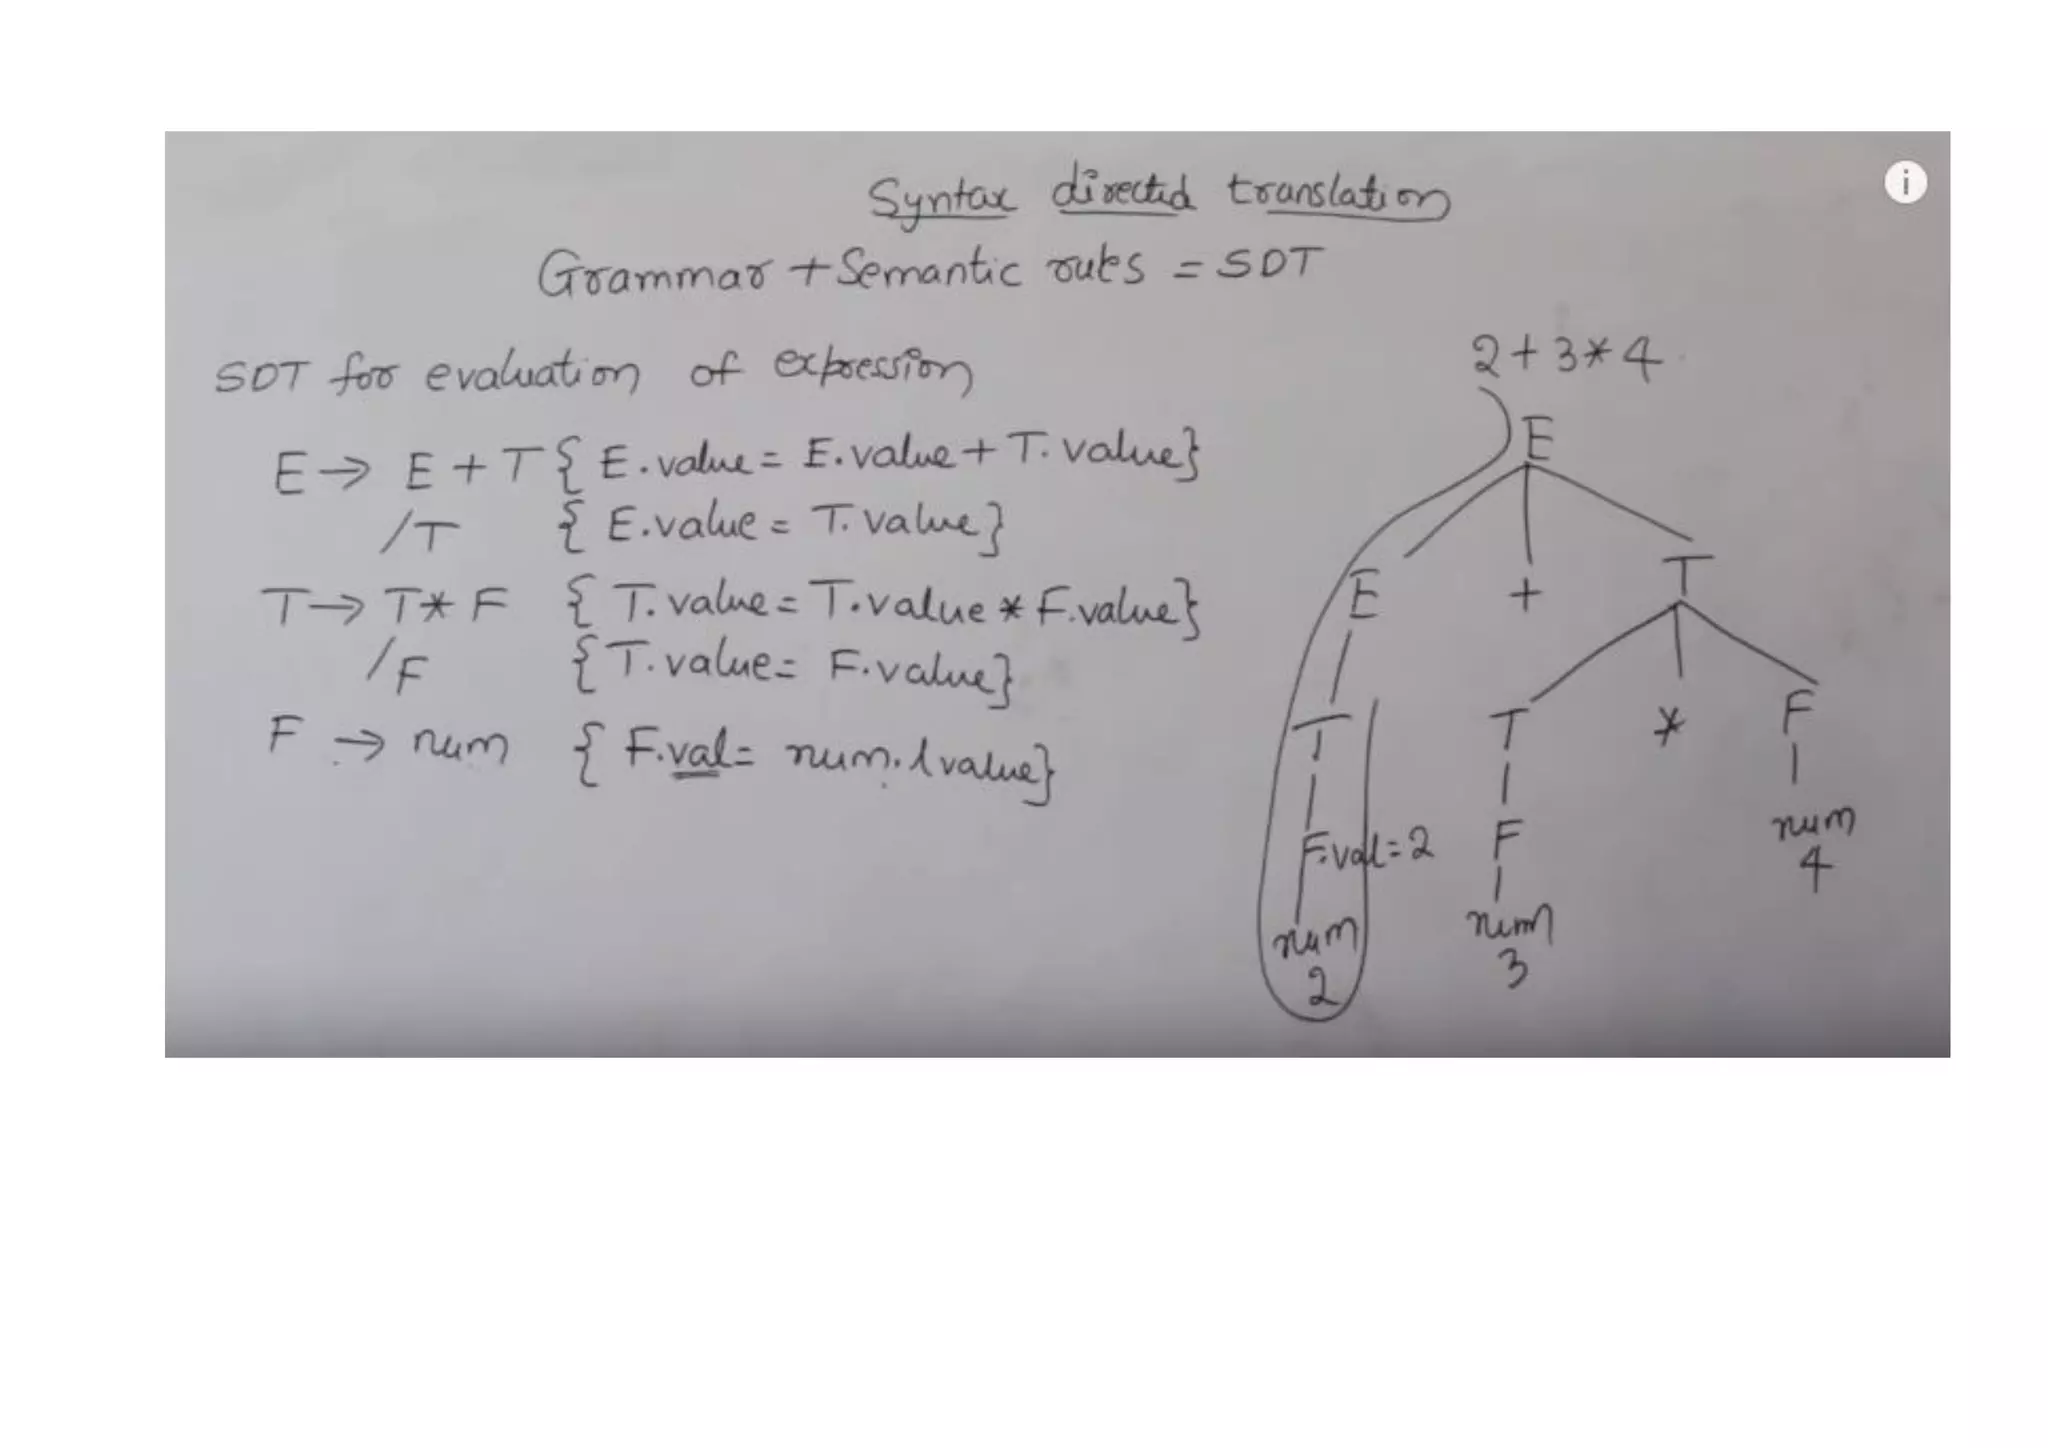 Syntax directed translation
Grammar + Semantic rules = SDT
SDT for evaluation of expression
E → E + T { E.value = E.value + T.value}
/T { E.value = T.value}
T → T * F { T.value = T.value * F.value}
/F { T.value = F.value}
F → num { F.val = num.lvalue}
2 + 3 * 4
E
E + T
T T * F
F.val = 2 F num
4
num num
2 3
i